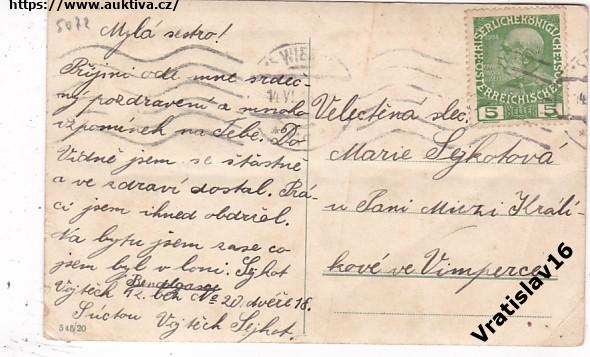 https://www.auktiva.cz/
5072
Mylá sestro!
Přijmi ode mne srdeč-
ný pozdravení a mnoho
vzpomínek na Tebe. Do
Vídně jsem se šťastně
a ve zdraví dostal. Prá-
ci jsem ihned obdržel.
Na bytu jsem zase co
jsem byl v loni. Sejkot
Vojtěch
No 20. dveře 18.
Súctou Vojtěch Sejkot.
546/20
WIEN
14.VI
KAISERLICHE KÖNIGLICHE
ÖSTERREICHISCHE
5 HELLER 5
Velectěná slec.
Marie Sejkotová
u Paní Miczi Králí-
kové ve Vimperce
Vratislav16